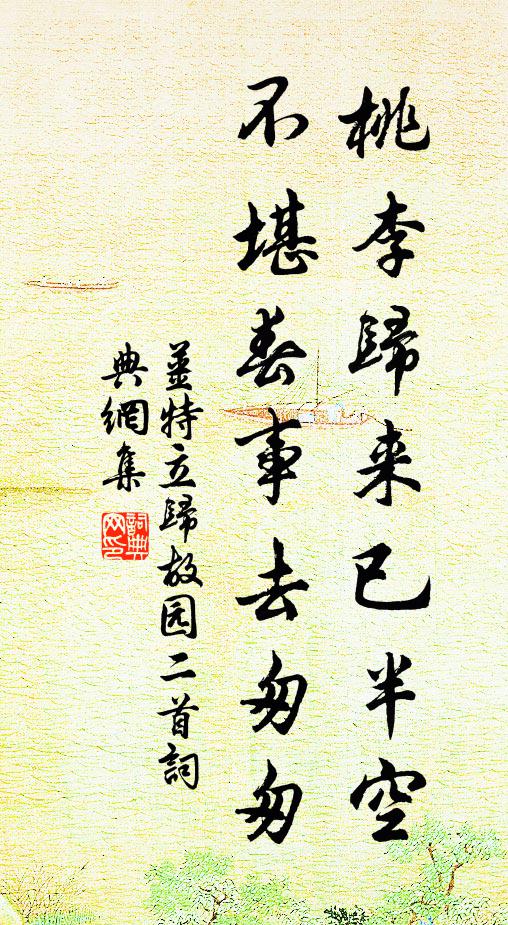 桃李歸来已半空
不堪春事去匆匆
姜特立歸故园二首詞
典網集
詞典网印